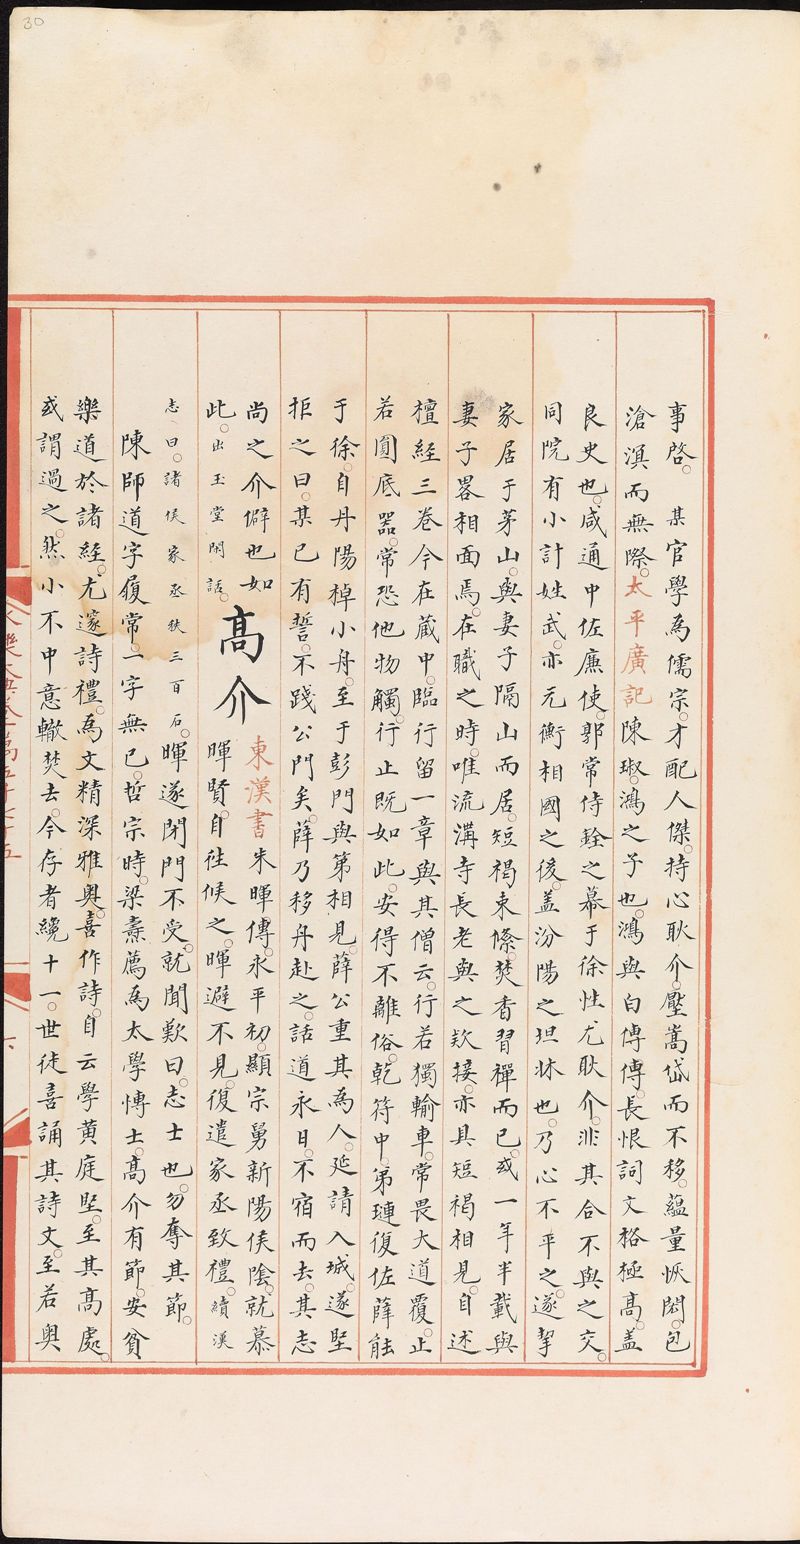 30
事啓。某官學為儒宗。才配人傑。持心耿介。壓嵩岱而不移。蘊量恢閎。包
滄溟而無際。太平廣記陳琡。鴻之子也。鴻與白傅傳。長恨詞文格極髙。盖
良史也。咸通中佐廉使。郭常侍銓之幕于徐性尤耿介。非其合不與之交。
同院有小計姓武。亦元衡相國之後。盖汾陽之坦牀也。乃心不平之。遂挈
家居于茅山。與妻子隔山而居。短褐束絛。焚香習禪而已。或一年半載與
妻子畧相面焉。在職之時。唯流溝寺長老與之欵接。亦具短褐相見。自述
檀經三卷今在蔵中。臨行留一章與其僧云。行若獨輪車。常畏大道覆。止
若圓底器。常恐他物觸。行止既如此。安得不離俗。乾符中。弟璉復佐薛能
于徐。自丹陽棹小舟。至于彭門與弟相見。薛公重其為人。延請入城。遂堅
拒之曰。某已有誓。不踐公門矣。薛乃移舟赴之。話道永日。不宿而去。其志
尚之介僻也如
此。出玉堂閒話。髙介 東漢書朱暉傳。永平初。顯宗舅新陽侯陰。就慕
暉賢。自往候之。暉避不見。復遣家丞致禮。續漢
志曰。諸侯家丞秩三百石。暉遂閉門不受。就聞歎曰。志士也。勿奪其節。
陳師道字履常。一字無已。哲宗時。梁燾薦為太學愽士。髙介有節。安貧
樂道於諸經。尤邃詩禮。為文精深雅奥。喜作詩。自云學黄庭堅。至其髙處。
或謂過之。然小不中意輙焚去。今存者纔十一。世徒喜誦其詩文。至若奥
永樂大典卷一萬五千七十五
六